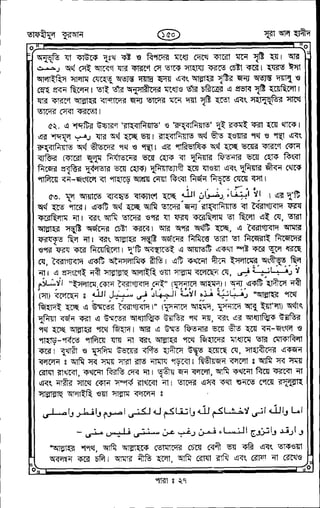 তাফহীমুল কুরআন
১৫০
সূরা আল হাদীদ
অনুভূতি যা কাউকে দুঃখ কষ্ট ও বিপদের মধ্যে দেখে কারো মনে সৃষ্টি হয়। আর
সেই আবেগ যার কারণে সে তাকে সাহায্য করতে চেষ্টা করে। হযরত ঈসা
আলাইহিস সালাম যেহেতু অত্যন্ত দয়ার্দ্র হৃদয় এবং আল্লাহর সৃষ্টির জন্য অত্যন্ত দয়ালু ও
স্নেহ প্রবণ ছিলেন। তাই তাঁর অনুসারীদের মধ্যেও তাঁর চরিত্রের এ প্রভাব সৃষ্টি হয়েছিলো।
যার কারণে আল্লাহর বান্দাদের জন্য তাদের মনে দয়া সৃষ্টি হতো এবং সহানুভূতির সাথে
তাদের সেবা করতো।
৫২. এ শব্দটির উচ্চারণ 'রাহবানিয়াত' ও 'রুহবানিয়াত' দুই রকমই করা হয়ে থাকে।
এর শব্দমূল رهب যার অর্থ হচ্ছে ভয়। রাহবানিয়াত অর্থ ভীত হওয়ার পথ ও পন্থা এবং
রুহবানিয়াত অর্থ ভীতদের পথ ও পন্থা। এর পারিভাষিক অর্থ হচ্ছে ভয়ের কারণে কোন
ব্যক্তির (কারো জুলুম নির্যাতনের ভয়ে হোক বা দুনিয়ার ফিতনার ভয়ে হোক কিংবা
নিজের প্রবৃত্তির দুর্বলতার ভয়ে হোক) দুনিয়াত্যাগী হয়ে যাওয়া এবং দুনিয়ার জীবন থেকে
পালিয়ে বন-জংগলে বা পাহাড়ে আশ্রয় নেয়া কিংবা নির্জন নিভৃতে যেয়ে বসা।
৫৩. মূল আয়াতে ব্যবহৃত বাক্যাংশ হচ্ছে الا ابتغاء رضوان الله। এর দু'টি
অর্থ হতে পারে। একটি অর্থ হচ্ছে আমি তাদের জন্য রাহবানিয়াত বা বৈরাগ্যবাদ ফরয
করেছিলাম না। বরং আমি তাদের ওপর যা ফরয করেছিলাম তা ছিলো এই যে, তারা
আল্লাহর সন্তুষ্টি অর্জনের চেষ্টা করবে। আর অপর অর্থটি হচ্ছে, এ বৈরাগ্যবাদ আমার
ফরযকৃত ছিল না। বরং আল্লাহর সন্তুষ্টি অর্জনের নিমিত্তে তারা তা নিজেরাই নিজেদের
ওপর ফরয করে নিয়েছিলো। দু'টি অবস্থাতেই এ আয়াতটি একথা স্পষ্ট করে তুলে ধরছে
যে, বৈরাগ্যবাদ একটি অনৈসলামিক রীতি। এটি কখনো দীনে ইসলামের অন্তর্ভুক্ত ছিল
না। এ প্রসংগেই নবী সাল্লাল্লাহু আলাইহি ওয়া সাল্লাম বলেছেন যে, لا رهبانية فى
الاسلام "ইসলামে কোন বৈরাগ্যবাদ নেই" (মুসনাদে আহমাদ)। অন্য একটি হাদীসে নবী
(সা) বলেছেন : رهبانية هذه الامة الجهاد فى سبيل الله "আল্লাহর পথে
জিহাদই হচ্ছে এ উম্মতের বৈরাগ্যবাদ।" (মুসনাদে আহমাদ, মুসনাদে আবু ইয়া'লা) অর্থাৎ
দুনিয়া বর্জন করা এ উম্মতের আধ্যাত্মিক উন্নতির পথ নয়, বরং এর আধ্যাত্মিক উন্নতির
পথ হচ্ছে আল্লাহর পথে জিহাদ। আর এ উম্মত ফিতনার ভয়ে ভীত হয়ে বন-জংগল ও
পাহাড়-পর্বতে পালিয়ে যায় না বরং আল্লাহর পথে জিহাদের মাধ্যমে তার মোকাবিলা
করে। বুখারী ও মুসলিম উভয়ের বর্ণিত হাদীসে উল্লেখ আছে যে, সাহাবীদের একজন
বললেন : আমি সব সময় সারা রাত নামায পড়বো। দ্বিতীয়জন বললেন : আমি সব সময়
রোযা রাখবো, কখনো বিরতি দেব না। তৃতীয় জন বললো, আমি কখনো বিয়ে করবো না
এবং নারীর সাথে কোন সম্পর্ক রাখবো না। তাদের এসব কথা শুনতে পেয়ে রসূলুল্লাহ
সাল্লাল্লাহু আলাইহি ওয়া সাল্লাম বললেন :
اما والله انى لاخشاكم لله واتقاكم له لكنى اصوم وافطر واصلى
و ارقد واتزوج النساء فمن رغب عن سنتى فليس منى -
"আল্লাহর শপথ, আমি আল্লাহকে তোমাদের চেয়ে বেশী ভয় করি এবং তাকওয়া
অবলম্বন করে চলি। আমার নীতি হলো, আমি রোযা রাখি এবং রোযা না রেখেও
পারা : ২৭